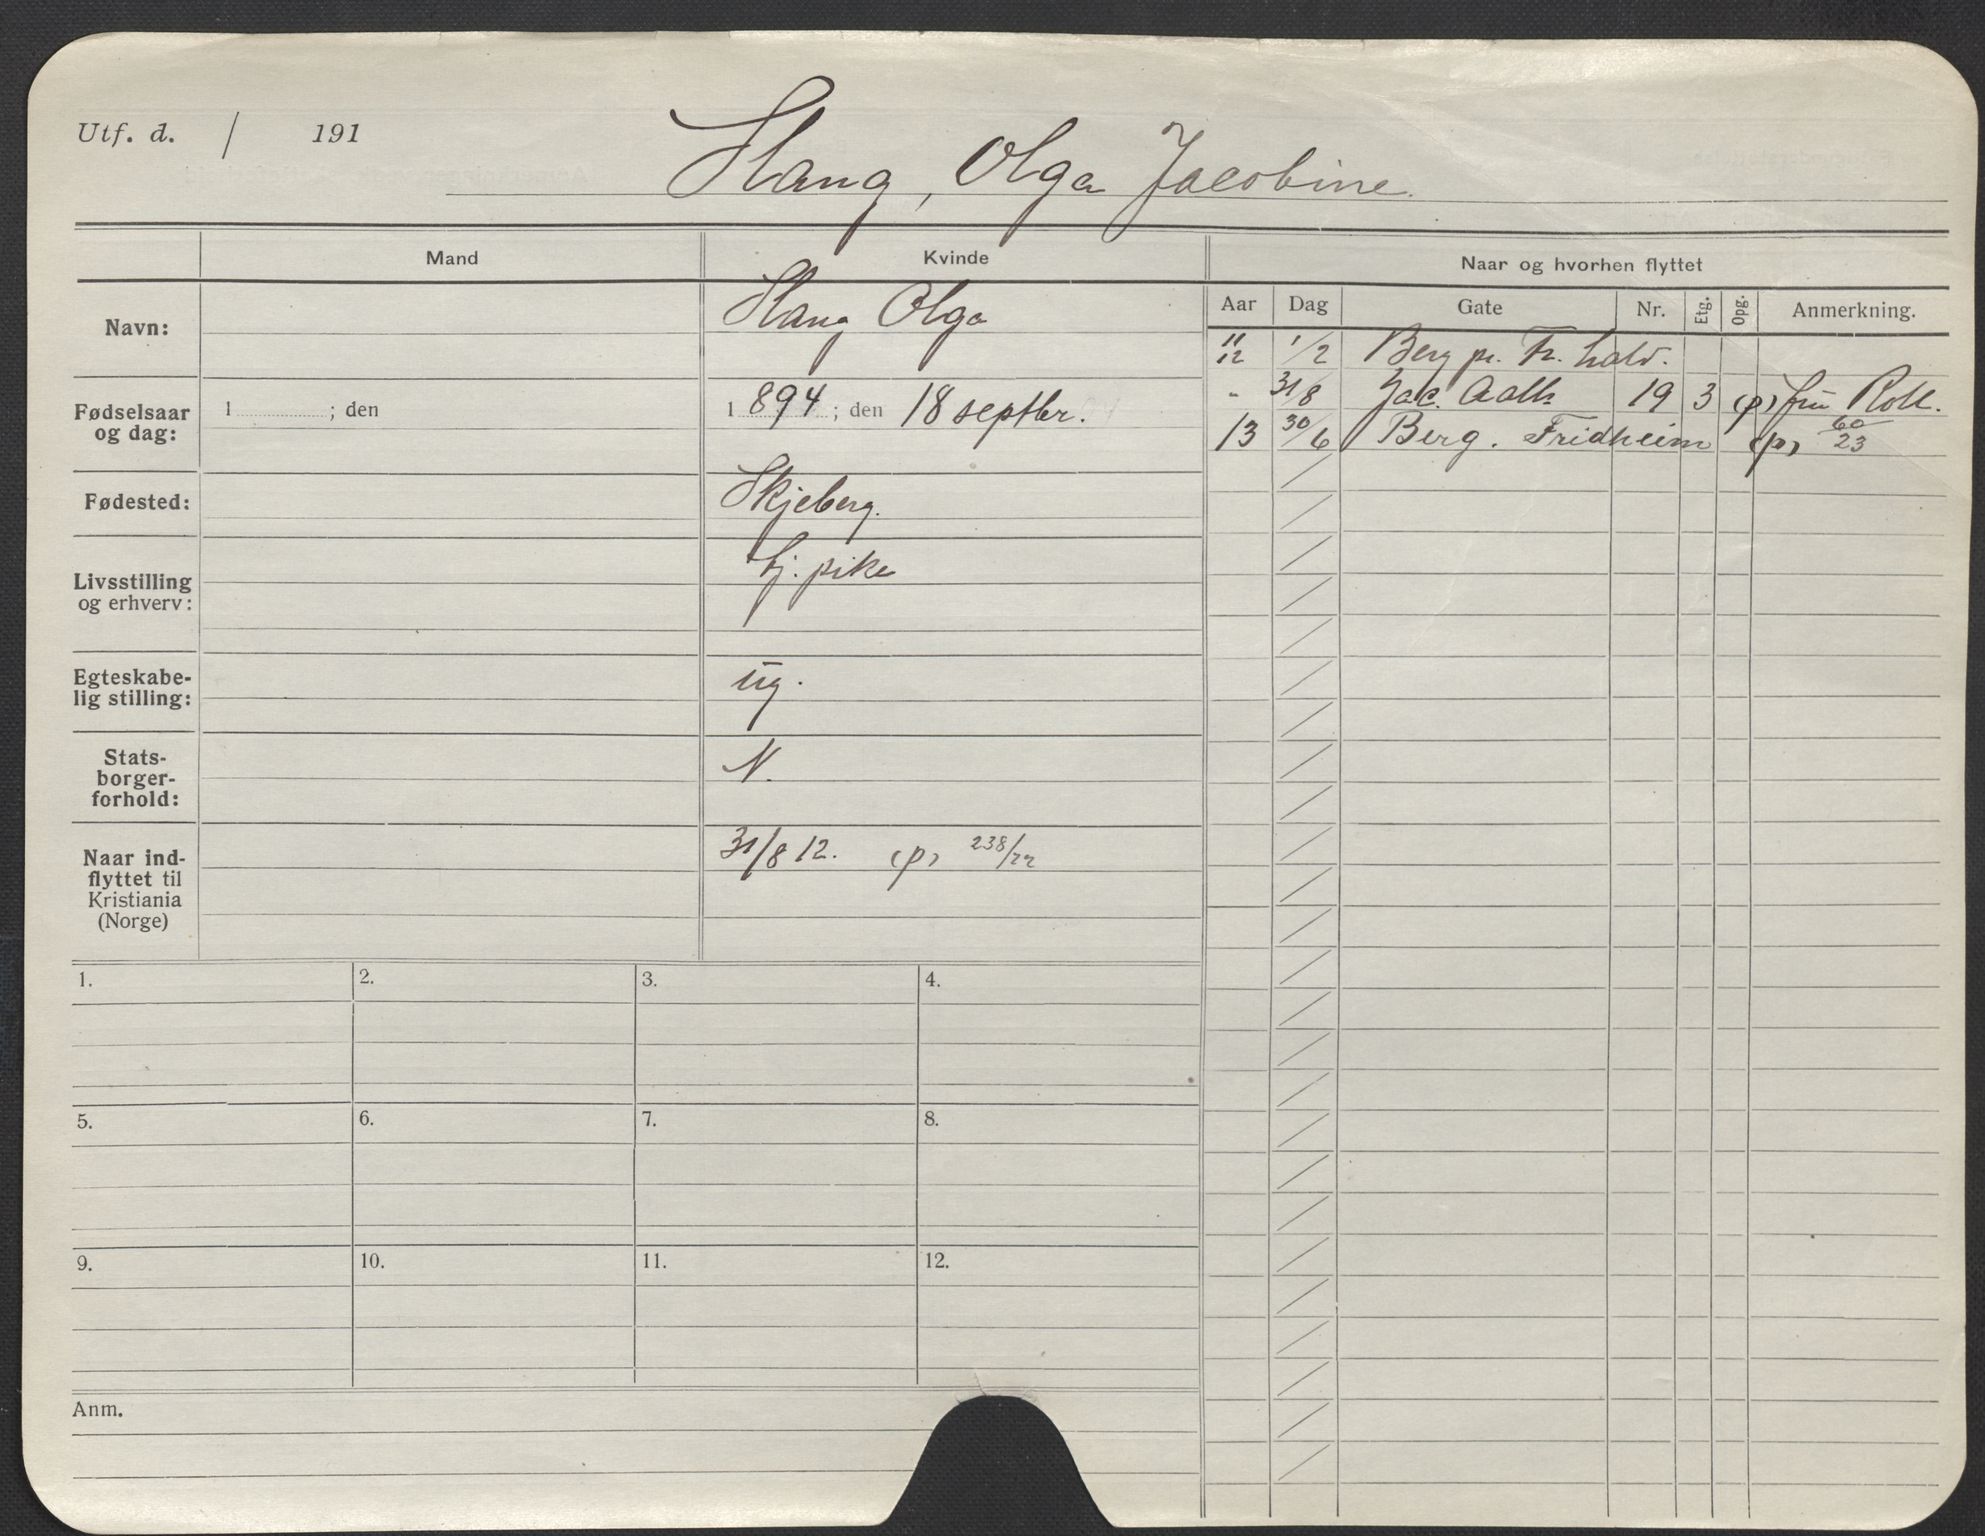 Utf. d. / 191
Slang, Olga Jacobine.
Mand Kvinde Naar og hvorhen flyttet
Aar Dag Gate Nr. Etg. Opg. Anmerkning.
Navn: Slang Olga
11/12 1/2 Berg pr. Fr.hald.
" 31/8 Jac. Aalls 19 3 (p) fru Roll.
13 30/6 Berg. Fridheim (p) 60/23
Fødselsaar
og dag: 1 ; den 1894 ; den 18 septbr.
Fødested: Skjeberg.
Livsstilling
og erhverv: tj. pike
Egteskabe-
lig stilling: ug.
Stats-
borger-
forhold: N.
Naar ind-
flyttet til
Kristiania
(Norge) 31/8 12. (p) 238/22
1. 2. 3. 4.
5. 6. 7. 8.
9. 10. 11. 12.
Anm.